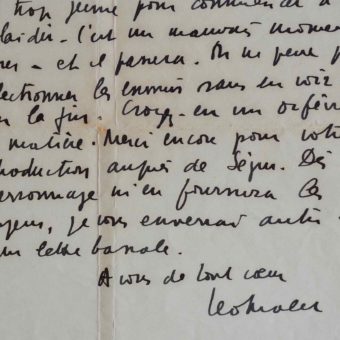 trop jeune pour commencer à
plaider - c'est un mauvais momen
- et il passera. On ne peut p
lectionner les ennuis sans en voir
la fin. Croyez-en un orfèvre
matière. Merci encore pour votr
roduction auprès de Ségur. Dès
ersonnage m'en fournira les
yens, je vous enverrai autre
une lettre banale.
A vous de tout cœur
Leo Malet